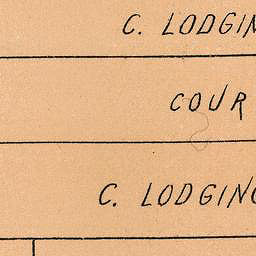 C. LODGIN
COUR
C. LODGING